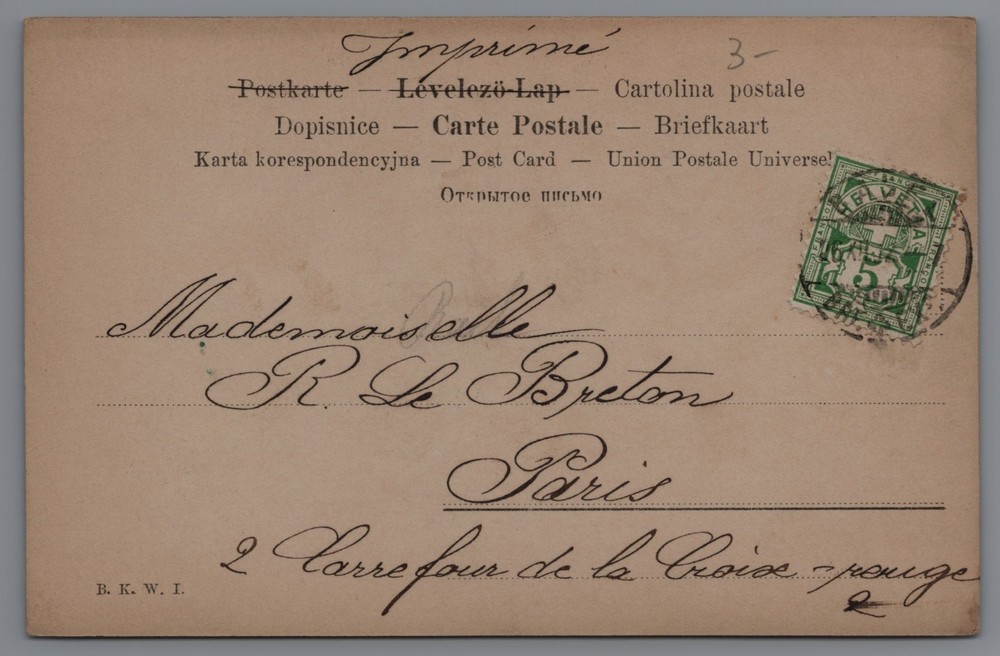 Imprimé
3-
Postkarte — Levelezö-Lap — Cartolina postale
Dopisnice — Carte Postale — Briefkaart
Karta korespondencyjna — Post Card — Union Postale Universel
Открытое письмо
HELVETIA
FRANCO
5
Mademoiselle
R. Le Breton
Paris
2 Carrefour de la Croix-rouge
2
B. K. W. I.